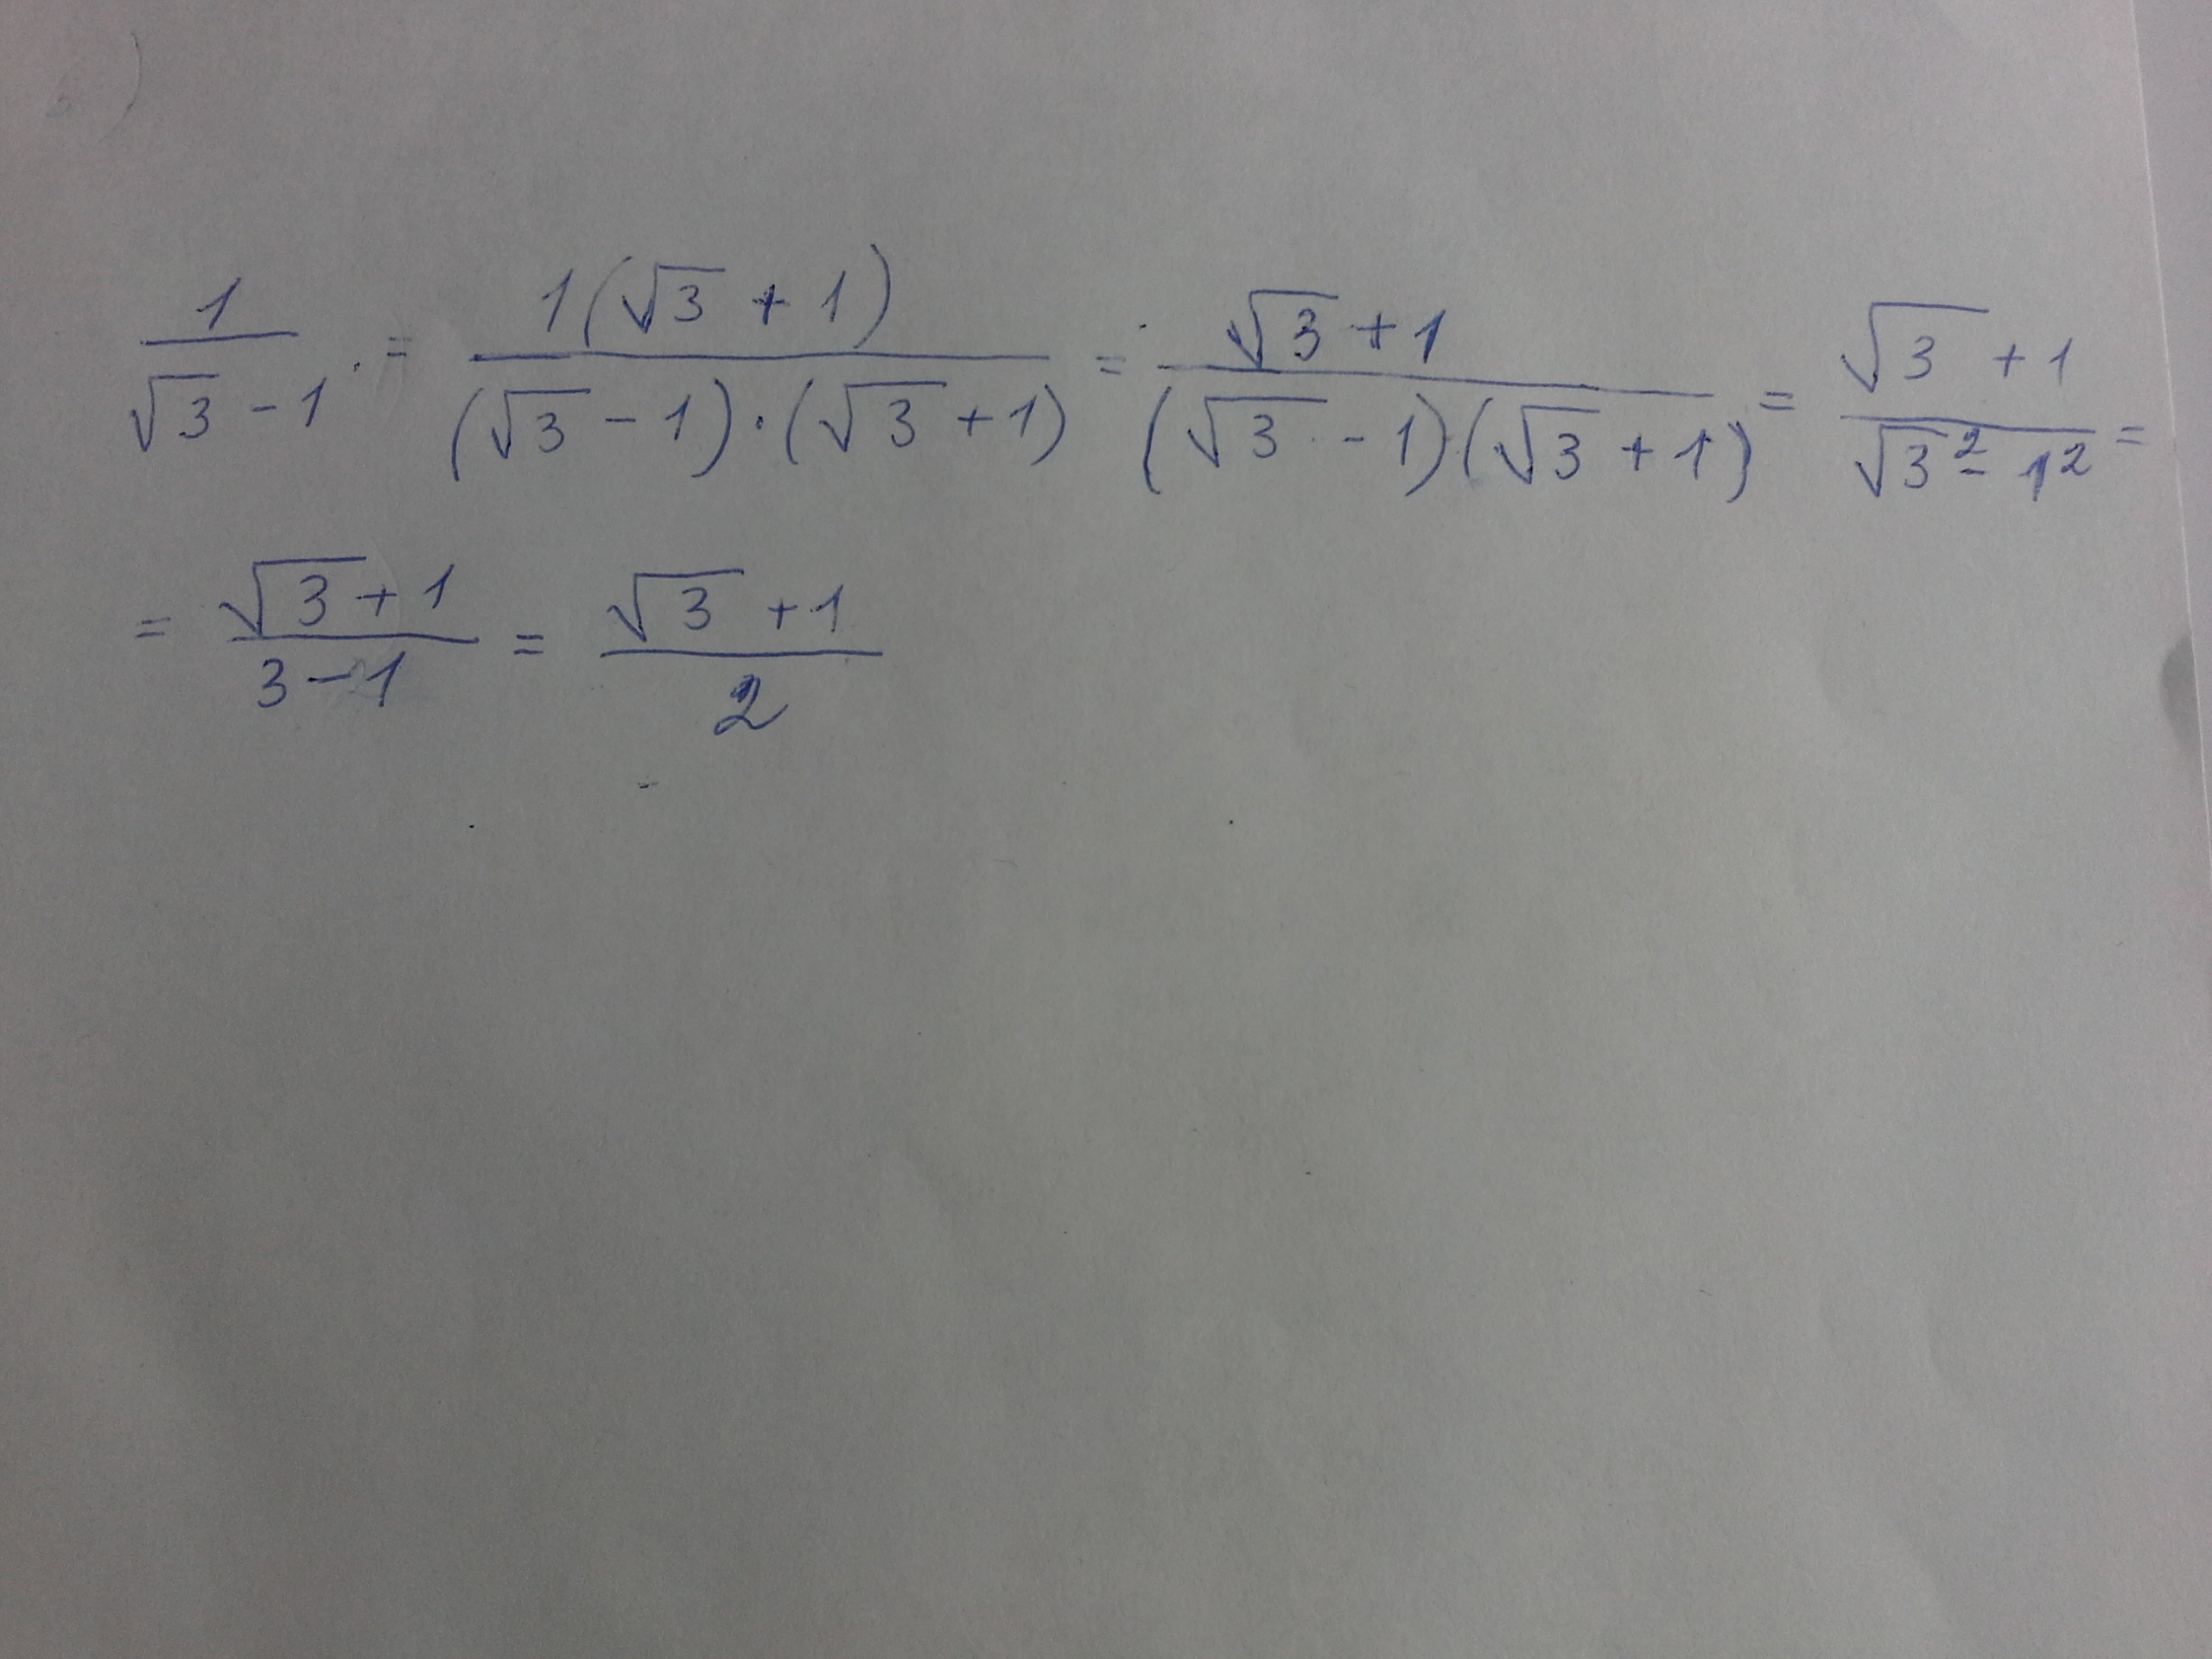 1/(√3 - 1) · = 1(√3 + 1)/((√3 - 1)·(√3 + 1)) = (√3 + 1)/((√3 - 1)(√3 + 1)) = (√3 + 1)/(√3² - 1²) =
= (√3 + 1)/(3 - 1) = (√3 + 1)/2